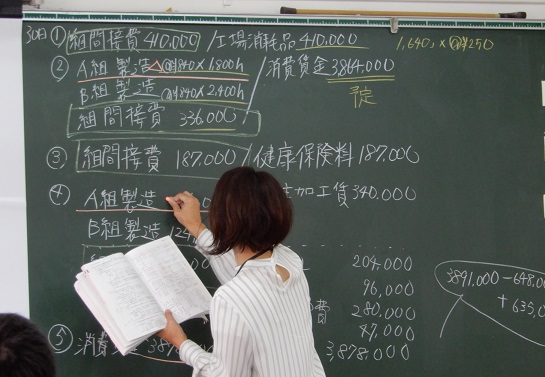 30日 ① 組間接費 410,000 / 工場消耗品 410,000 1,640コ×@¥250
② A組製造 @¥840×1,800h / 消費賃金 3,864,000
B組製造 @¥840×2,400h 予定
組間接費 336,000
③ 組間接費 187,000 / 健康保険料 187,000
④ A組製造 加工賃 340,000
B組製造 124
204,000
96,000
280,000
47,000
⑤ 消費 387 3,878,000
3,891,000-648,00
+635,0